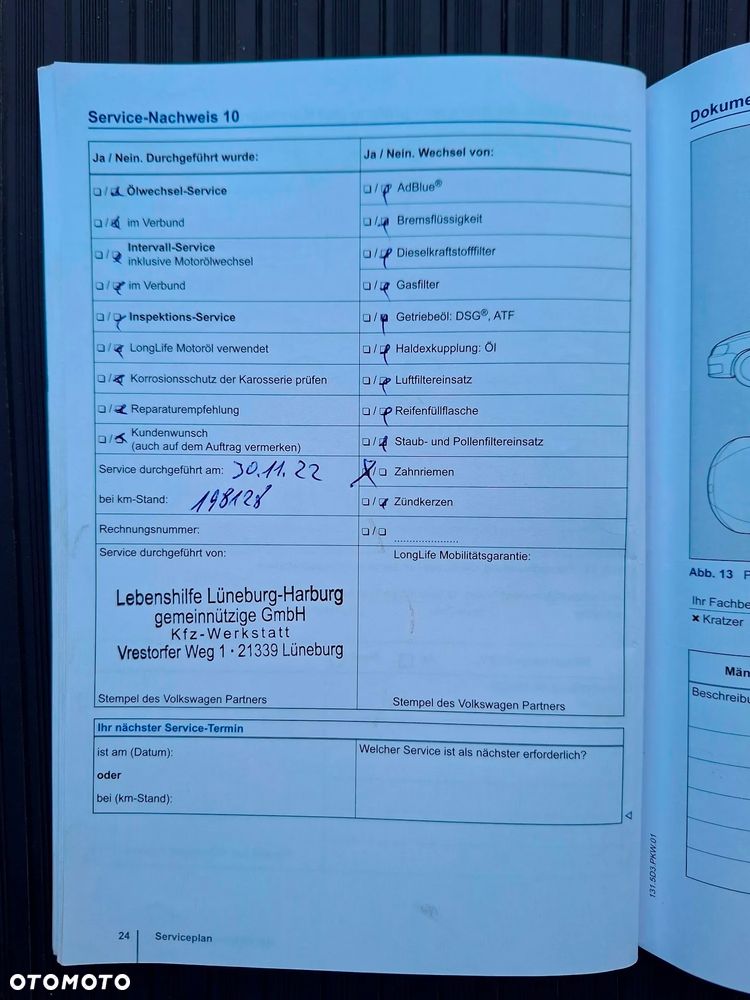 Service-Nachweis 10
Ja / Nein. Durchgeführt wurde:
☐ / ☒ Ölwechsel-Service
☐ / ☒ im Verbund
☐ / ☒ Intervall-Service
inklusive Motorölwechsel
☐ / ☒ im Verbund
☐ / ☒ Inspektions-Service
☐ / ☒ LongLife Motoröl verwendet
☐ / ☒ Korrosionsschutz der Karosserie prüfen
☐ / ☒ Reparaturempfehlung
☐ / ☒ Kundenwunsch
(auch auf dem Auftrag vermerken)
Service durchgeführt am: 30.11.22
bei km-Stand: 198128
Rechnungsnummer:
Service durchgeführt von:
Lebenshilfe Lüneburg-Harburg
gemeinnützige GmbH
Kfz-Werkstatt
Vrestorfer Weg 1 · 21339 Lüneburg
Stempel des Volkswagen Partners
Ja / Nein. Wechsel von:
☐ / ☒ AdBlue®
☐ / ☒ Bremsflüssigkeit
☐ / ☒ Dieselkraftstofffilter
☐ / ☒ Gasfilter
☐ / ☒ Getriebeöl: DSG®, ATF
☐ / ☒ Haldexkupplung: Öl
☐ / ☒ Luftfiltereinsatz
☐ / ☒ Reifenfüllflasche
☐ / ☒ Staub- und Pollenfiltereinsatz
☒ / ☐ Zahnriemen
☐ / ☒ Zündkerzen
☐ / ☐ .....................
LongLife Mobilitätsgarantie:
Stempel des Volkswagen Partners
Ihr nächster Service-Termin
ist am (Datum):
oder
bei (km-Stand):
Welcher Service ist als nächster erforderlich?
24 Serviceplan
131.5D3.PKW.01
Dokume
Abb. 13 P
Ihr Fachbe
× Kratzer
Män
Beschreibu
OTOMOTO